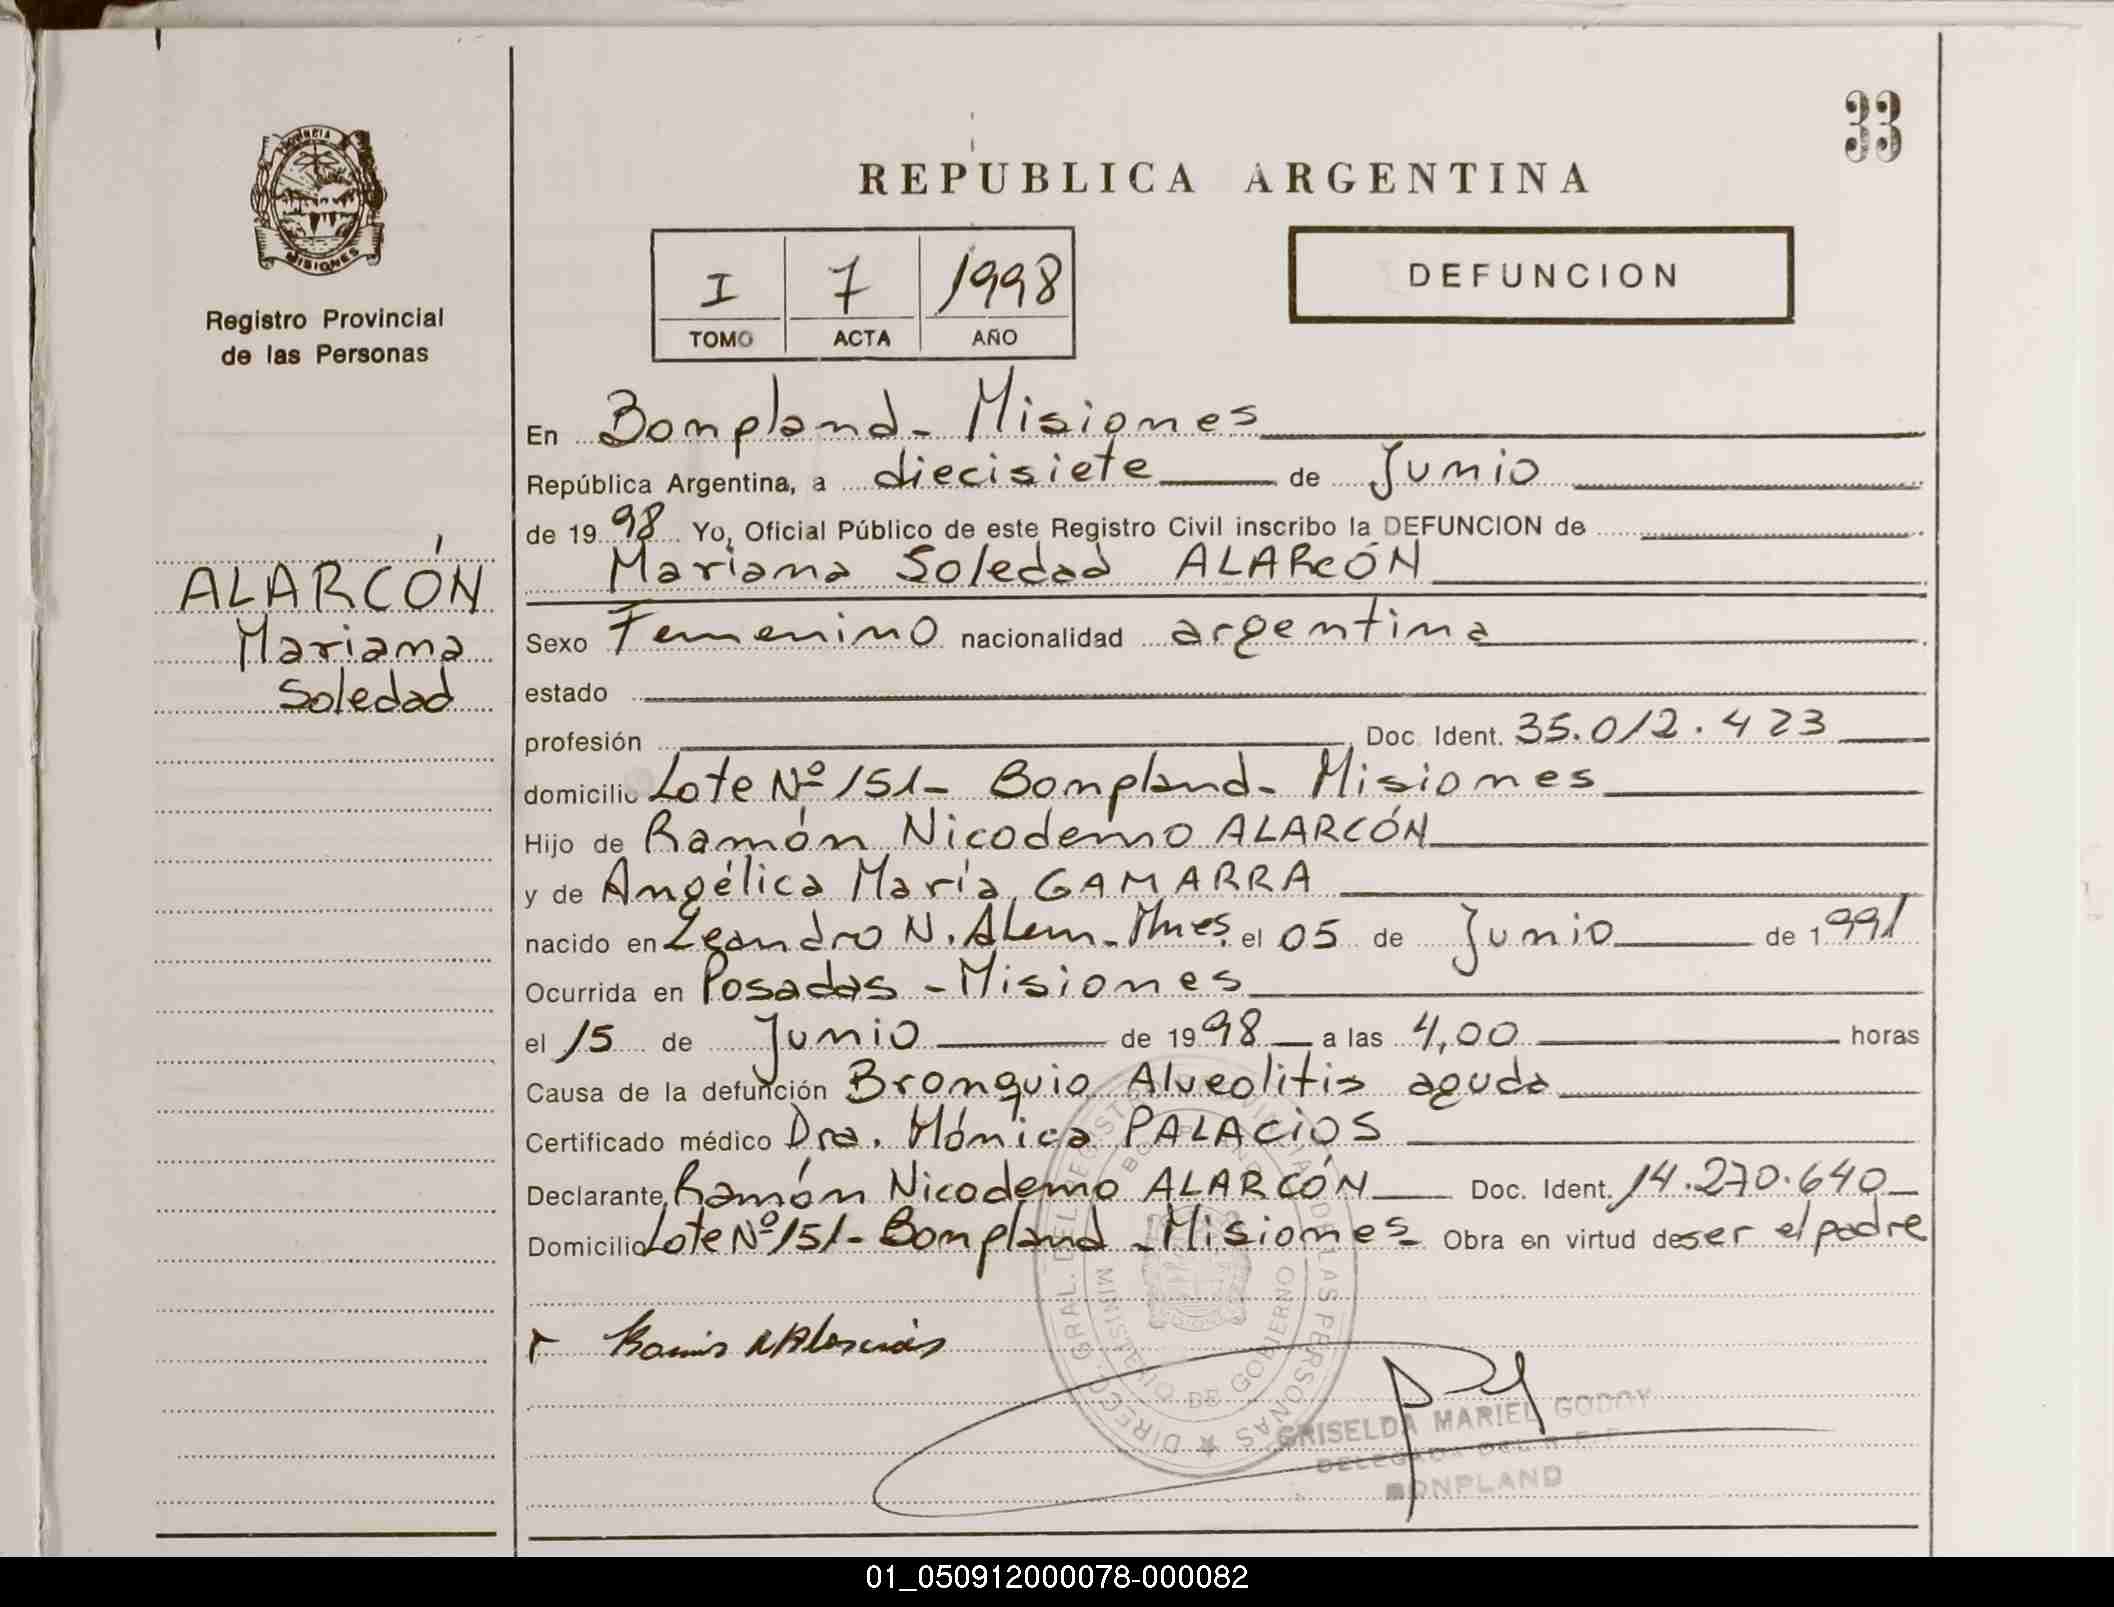 33
PROVINCIA
MISIONES
Registro Provincial
de las Personas
REPUBLICA ARGENTINA
I 7 1998
TOMO ACTA AÑO
DEFUNCION
En Bompland - Misiones
República Argentina, a diecisiete de Junio
de 1998 Yo, Oficial Público de este Registro Civil inscribo la DEFUNCION de
Mariana Soledad ALARCÓN
ALARCÓN
Mariana
Soledad
Sexo Femenino nacionalidad argentina
estado
profesión Doc. Ident. 35.012.423
domicilio Lote Nº 151 - Bompland - Misiones
Hijo de Ramón Nicodemo ALARCÓN
y de Angélica María GAMARRA
nacido en Leandro N. Alem - Mnes. el 05 de Junio de 1991
Ocurrida en Posadas - Misiones
el 15 de Junio de 1998 a las 4,00 horas
Causa de la defunción Bronquio Alveolitis aguda
Certificado médico Dra. Mónica PALACIOS
Declarante Ramón Nicodemo ALARCÓN Doc. Ident. 14.270.640
Domicilio Lote Nº 151 - Bompland - Misiones Obra en virtud de ser el padre
DIRECC. GRAL. DEL REGISTRO PROVINCIAL DE LAS PERSONAS
MINISTERIO DE GOBIERNO
GRISELDA MARIEL GODOY
DELEGADA DEL
BONPLAND
01_050912000078-000082